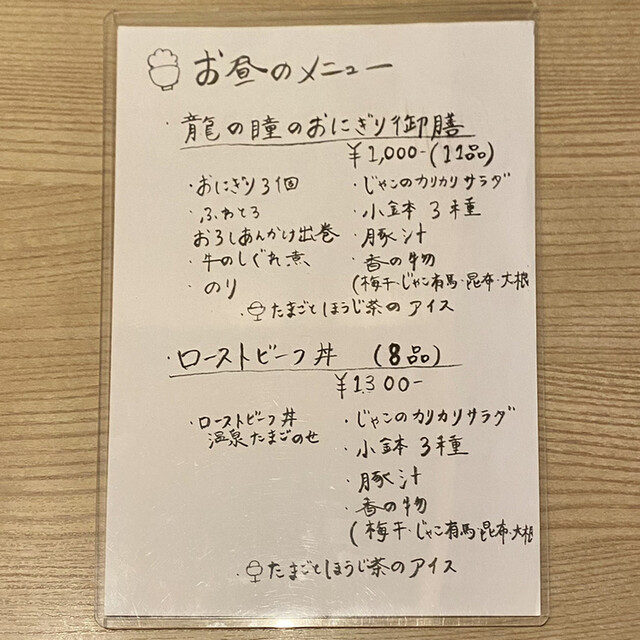 お昼のメニュー
・龍の瞳のおにぎり御膳
¥1,000-(11品)
・おにぎり3個
・ふわとろ
おろしあんかけ出巻
・牛のしぐれ煮
・のり
・じゃこのカリカリサラダ
・小鉢 3種
・豚汁
・香の物
(梅干・じゃこ有馬・昆布・大根
・たまごとほうじ茶のアイス
・ローストビーフ丼 (8品)
¥1300-
・ローストビーフ丼
温泉たまごのせ
・じゃこのカリカリサラダ
・小鉢 3種
・豚汁
・香の物
(梅干・じゃこ有馬・昆布・大根
・たまごとほうじ茶のアイス